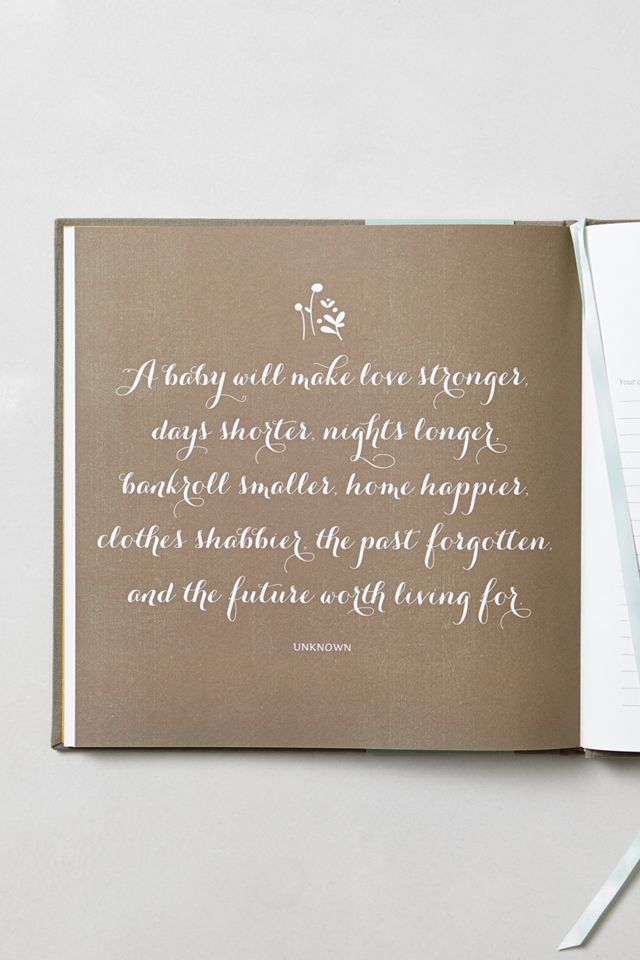 A baby will make love stronger,
days shorter, nights longer,
bankroll smaller, home happier,
clothes shabbier, the past forgotten,
and the future worth living for.
UNKNOWN
Your